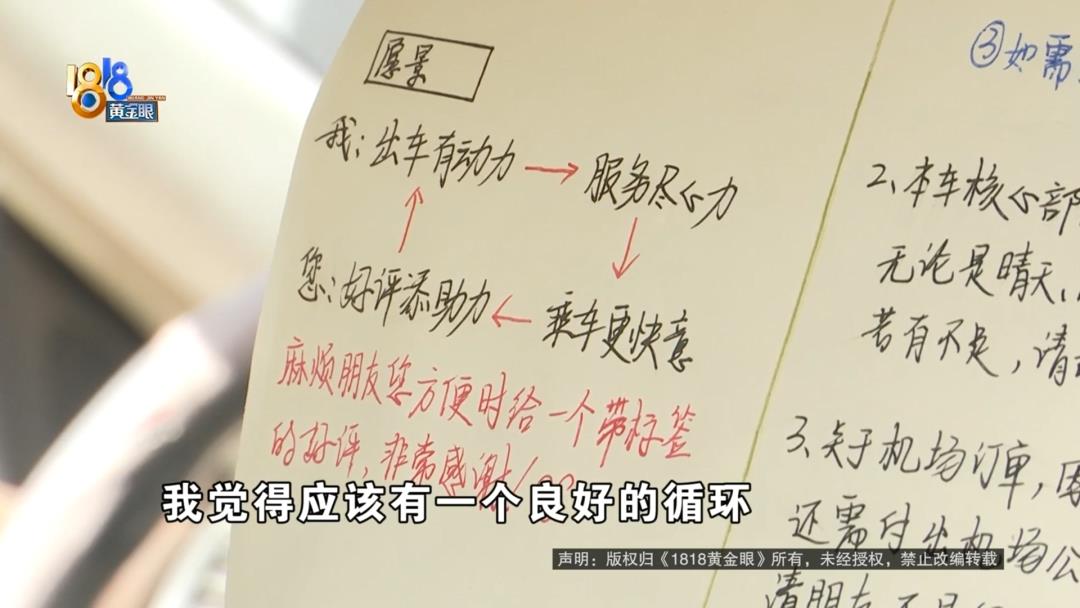 1818
黄金眼
愿景
我：出车有动力→服务尽心力
↓
↑
您：好评添助力←乘车更快意
麻烦朋友您方便时给一个带标签
的好评，非常感谢！
③如需
2、本车核心部
无论是晴天、
若有不足，请
3、关于机场订单，
还需付出机场公
请朋友
我觉得应该有一个良好的循环
声明：版权归《1818黄金眼》所有，未经授权，禁止改编转载